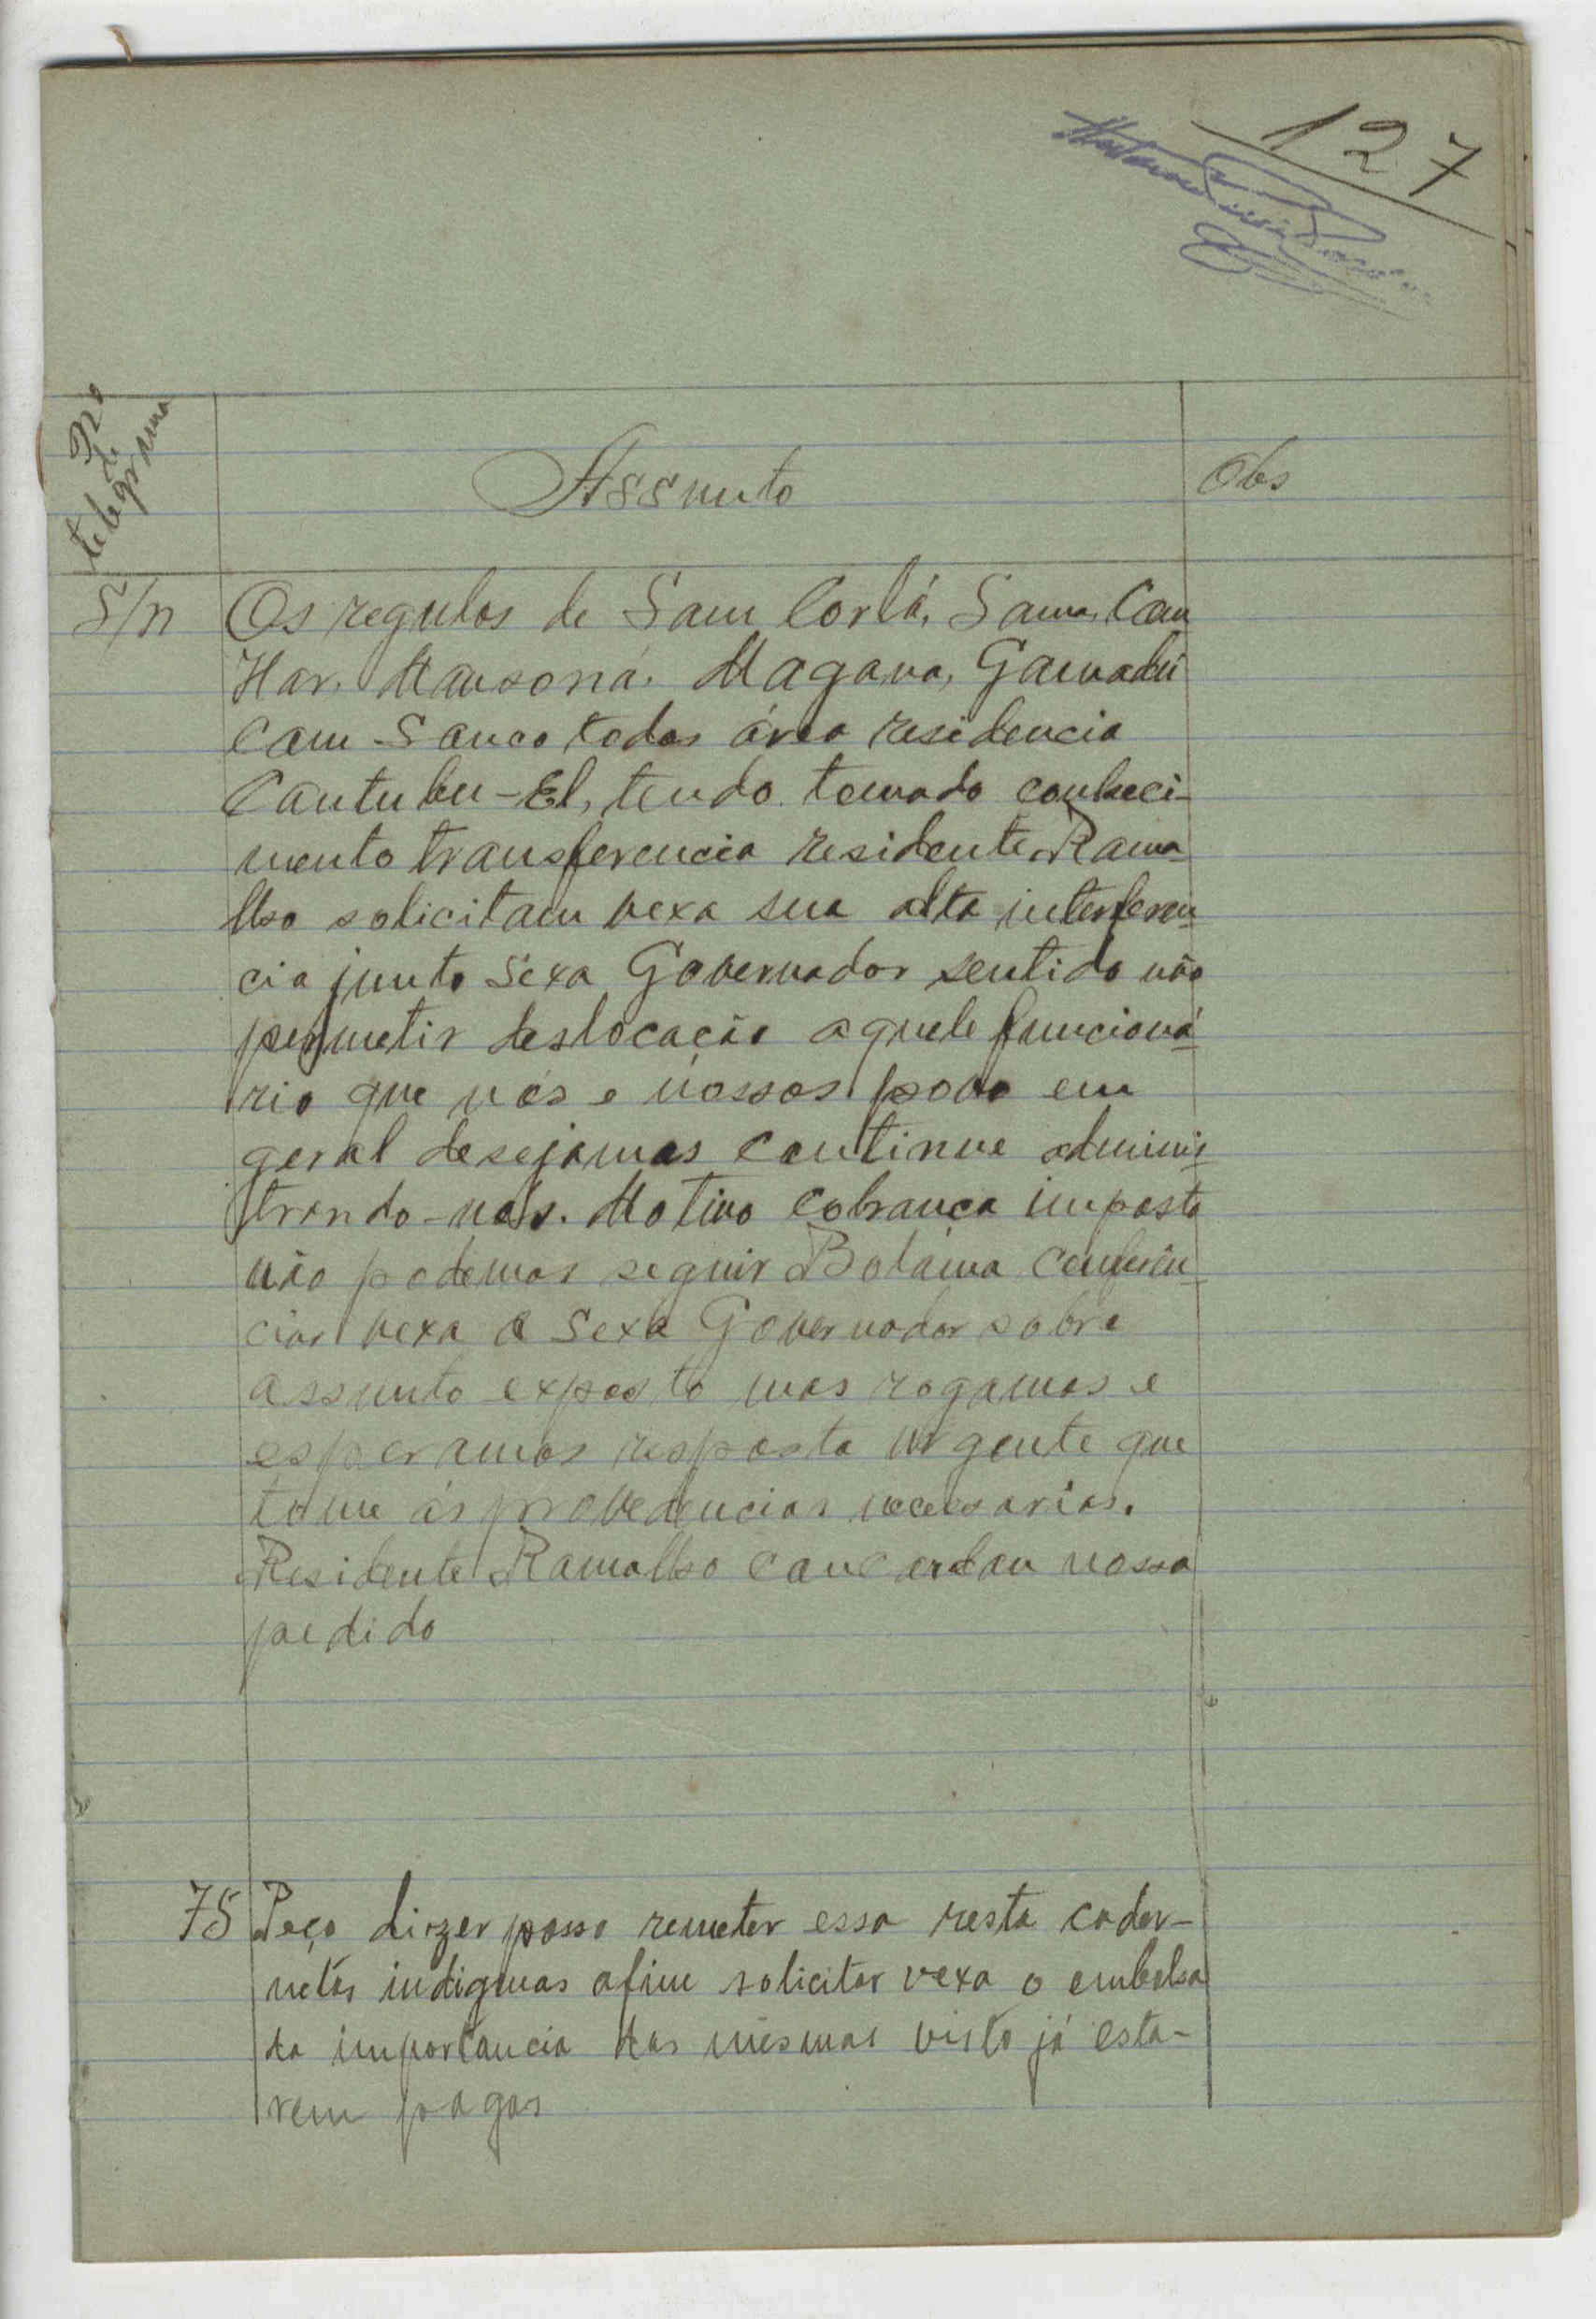 127
No
de
telegrama
Assunto
Obs
S/n
Os regulos de Sam Corlá, Sama, Cam
Har. Mansoná. Magama, Gamadú
Cam Sanco todos área residencia
Cantubu-El, tendo tomado conheci-
mento transferencia residente Rama-
lho solicitam vexa sua alta interferen-
cia junto Sexa Governador sentido não
permetir deslocação aquele funcioná-
rio que nós e nossos povo em
geral desejamos continue adminis-
trando-nos. Motivo cobrança imposto
não podemos seguir Bolama conferên-
ciar vexa e Sexa Governador sobre
assunto exposto mas rogamos e
esperamos resposta urgente que
tome ás provedencias necessarias.
Residente Ramalho concordou nosso
pedido
75
Peço dizer posso remeter essa resta cader-
netas indigenas afim solicitar vexa o embolso
da importancia das mesmas visto já esta-
rem pagas